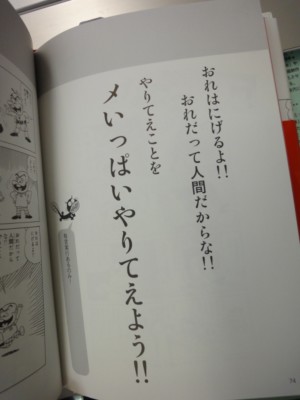 おれはにげるよ!!
おれだって人間だからな!!
やりてえことを
メいっぱいやりてえよう!!
74